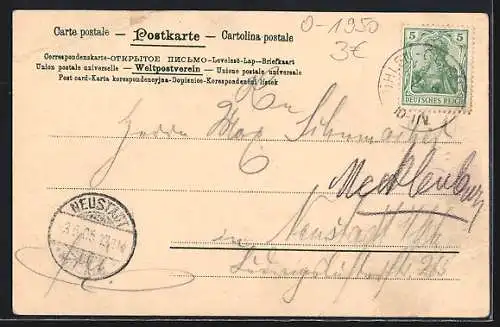 Carte postale — Postkarte — Cartolina postale
Correspondenskarte-ОТКРЫТОЕ ПИСЬМО-Levelező-Lap-Briefkaart
Union postale universelle — Weltpostverein — Unione postale universale
Post card-Karta korespondencyjna-Dopisnice-Korespondenční lístek
0-1950
3€
5 5
DEUTSCHES REICH
An
Herrn Max Schumacher
Mecklenburg
in Neustadt
Ludwigslusterstr. 263
NEUSTADT